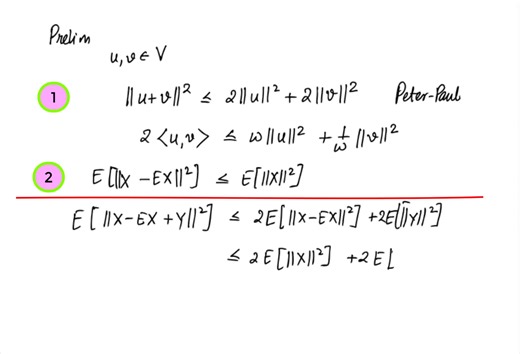 Prelim
u, v ∈ V
1 ||u+v||² ≤ 2||u||² + 2||v||² Peter-Paul
2<u,v> ≤ w||u||² + 1/w ||v||²
2 E[||X - EX||²] ≤ E[||X||²]
E[||X-EX+Y||²] ≤ 2E[||X-EX||²] + 2E[||Y||²]
≤ 2E[||X||²] + 2E[